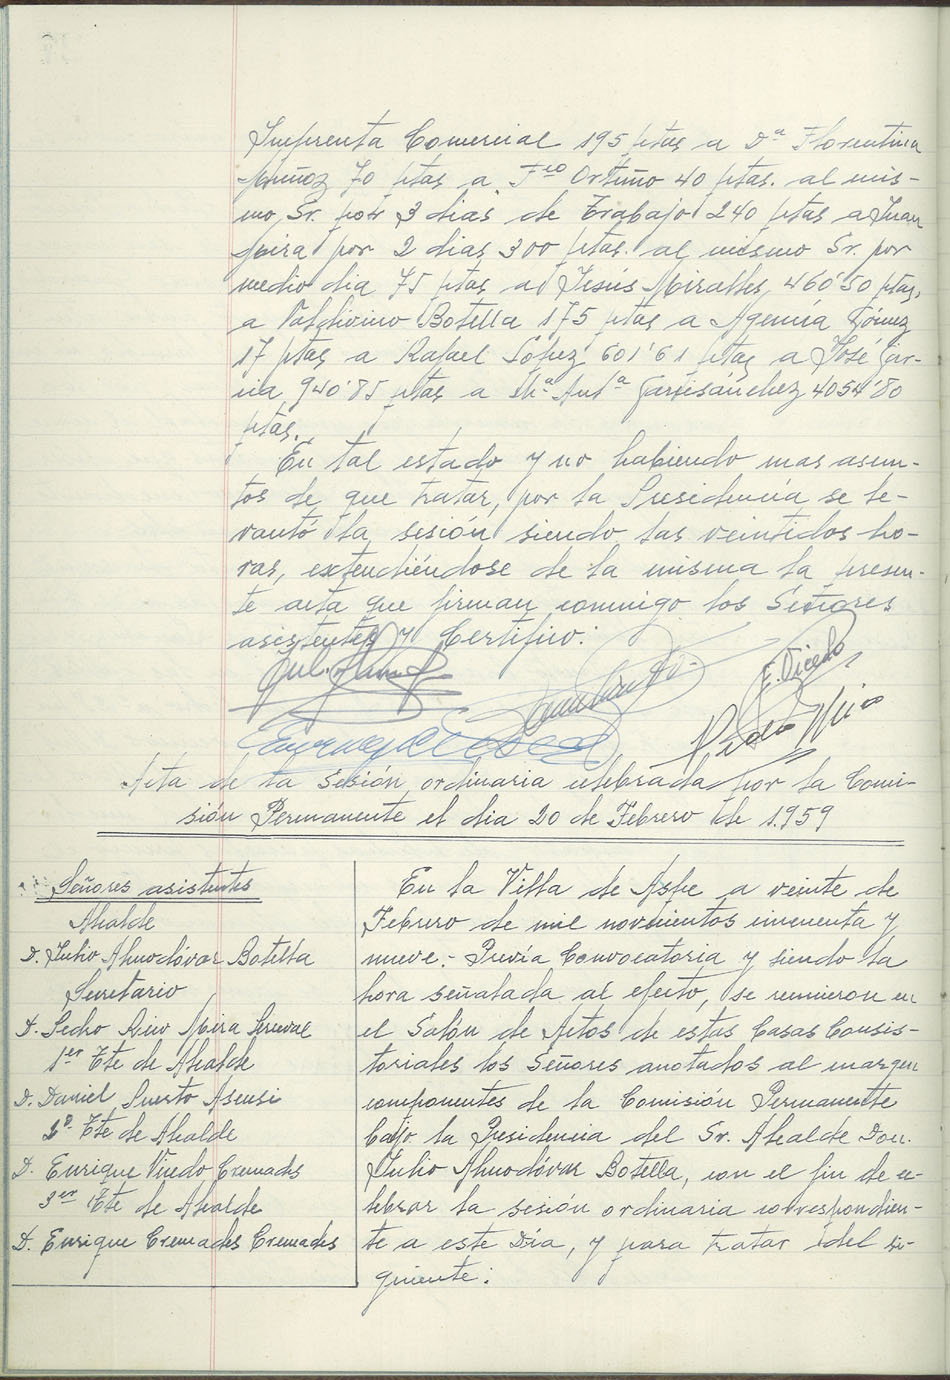 Imprenta Comercial 195 ptas a Dª Florentina
Muñoz 70 ptas a Fco Ortuño 40 ptas. al mis-
mo Sr. por 3 dias de Trabajo 240 ptas a Juan
Mira por 2 dias 300 ptas. al mismo Sr. por
medio dia 75 ptas a Jesús Miralles, 460'50 ptas,
a Valdivino Botella 175 ptas a Agencia Gómez
17 ptas a Rafael López 601'61 ptas a José Gar-
cia 940'85 ptas a Mª Antª Garrisánchez 4054'80
ptas.
En tal estado y no habiendo mas asun-
tos de que tratar, por la Presidencia se le-
vantó la sesión siendo las veintidos ho-
ras, extendiéndose de la misma la presen-
te acta que firman conmigo los Señores
asistentes y Certifico:
E. Vicedo
Pedro Mira
Acta de la Sesión ordinaria celebrada por la Comi-
sión Permanente el dia 20 de Febrero de 1.959
Señores asistentes
Alcalde
D. Julio Almodóvar Botella
Secretario
D. Pedro Mira
1er Tte de Alcalde
D. Daniel Puerto Asensi
2º Tte de Alcalde
D. Enrique Vicedo Cremades
3er Tte de Alcalde
D. Enrique Cremades Cremades
En la Villa de Aspe a veinte de
Febrero de mil novecientos cincuenta y
nueve.- Previa Convocatoria y siendo la
hora señalada al efecto, se reunieron en
el Salón de Actos de estas Casas Consis-
toriales los Señores anotados al margen
componentes de la Comisión Permanente
bajo la Presidencia del Sr. Alcalde Don.
Julio Almodóvar Botella, con el fin de ce-
lebrar la sesión ordinaria correspondien-
te a este Dia, y para tratar del si-
guiente: